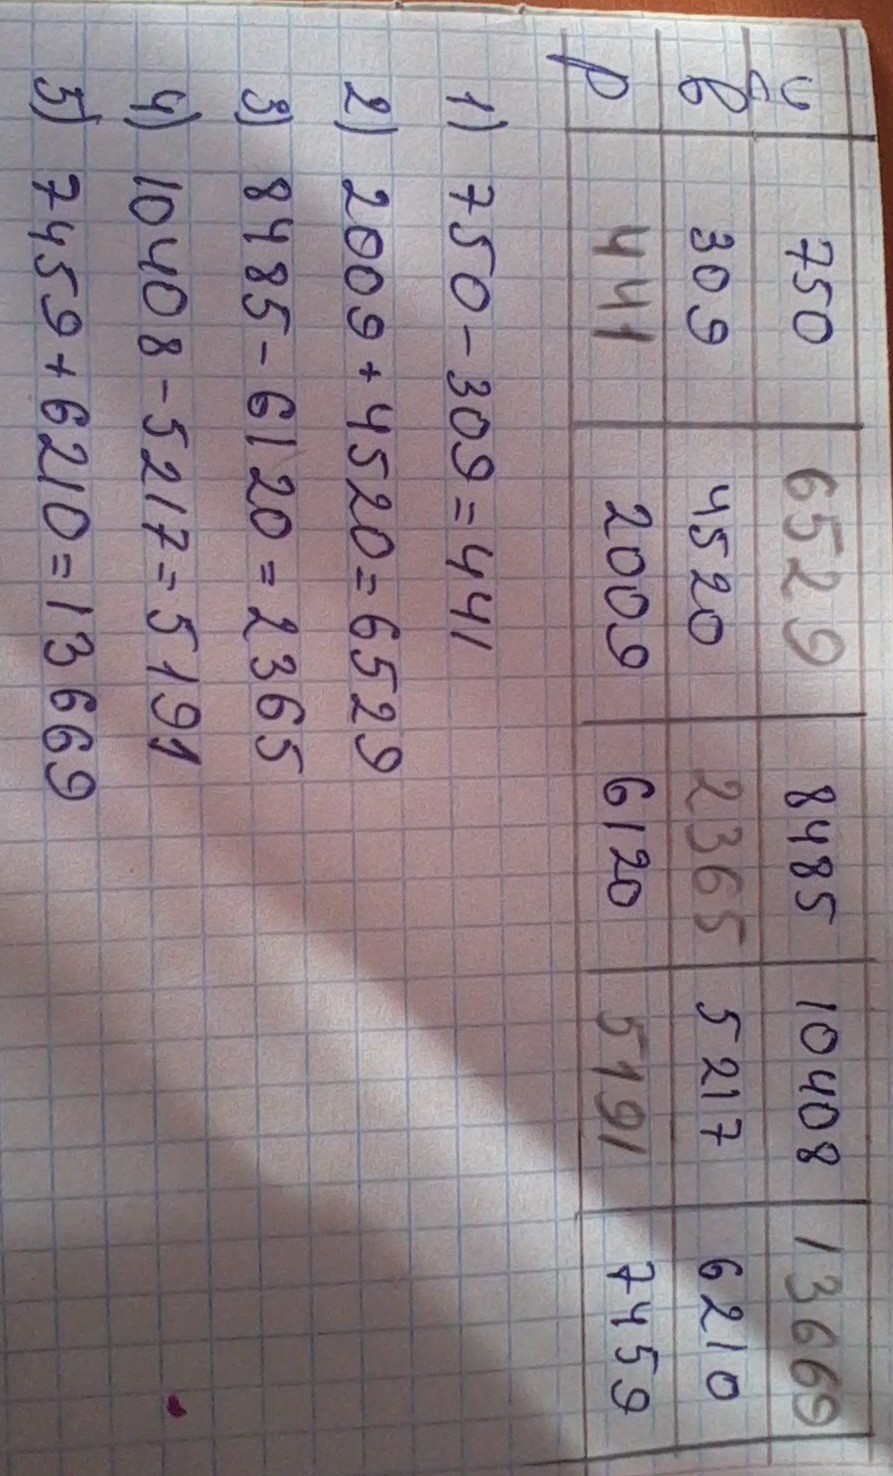 у 750 6529 8485 10408 13669
в 309 4520 2365 5217 6210
р 441 2009 6120 5191 7459
1) 750 - 309 = 441
2) 2009 + 4520 = 6529
3) 8485 - 6120 = 2365
4) 10408 - 5217 = 5191
5) 7459 + 6210 = 13669